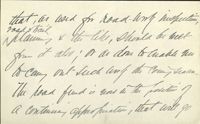 that, as used for road work inspection,
road & trail
planning, & the like, should be kept
from it also; or as done to enable them
to carry out such work the coming season
The road fund is now in the position of
a continuing appropriation, that will go